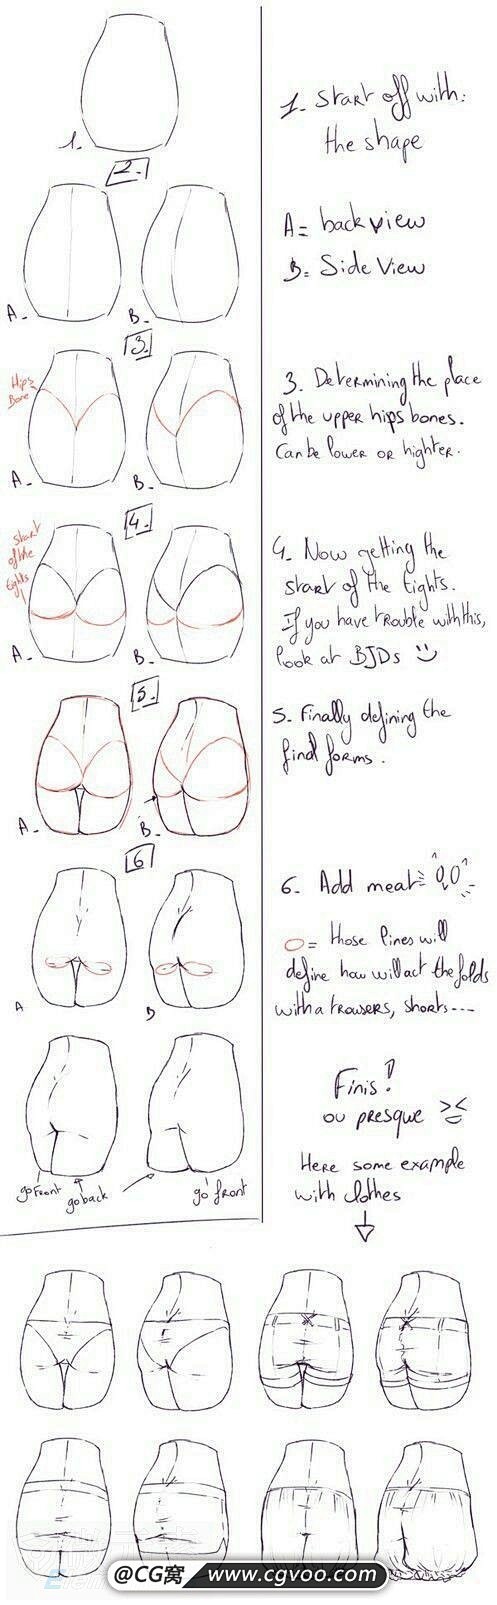 1.
1. Start off with:
the shape
2.
A = back view
B = Side View
A-
B-
3.
Hips
Bone
3. Determining the place
of the upper hips bones.
Can be lower or highter.
A-
B-
4.
start
of the
tights
4. Now getting the
start of the tights.
If you have trouble with this,
look at BJDs
A-
B-
5.
5. Finally defining the
final forms.
A-
B-
6
6. Add meat
= those lines will
define how will act the folds
with a trousers, shorts---
A
B
Finis!
ou presque ><
Here some example
with clothes
go front
go back
go front
@CG窝 www.cgvoo.com